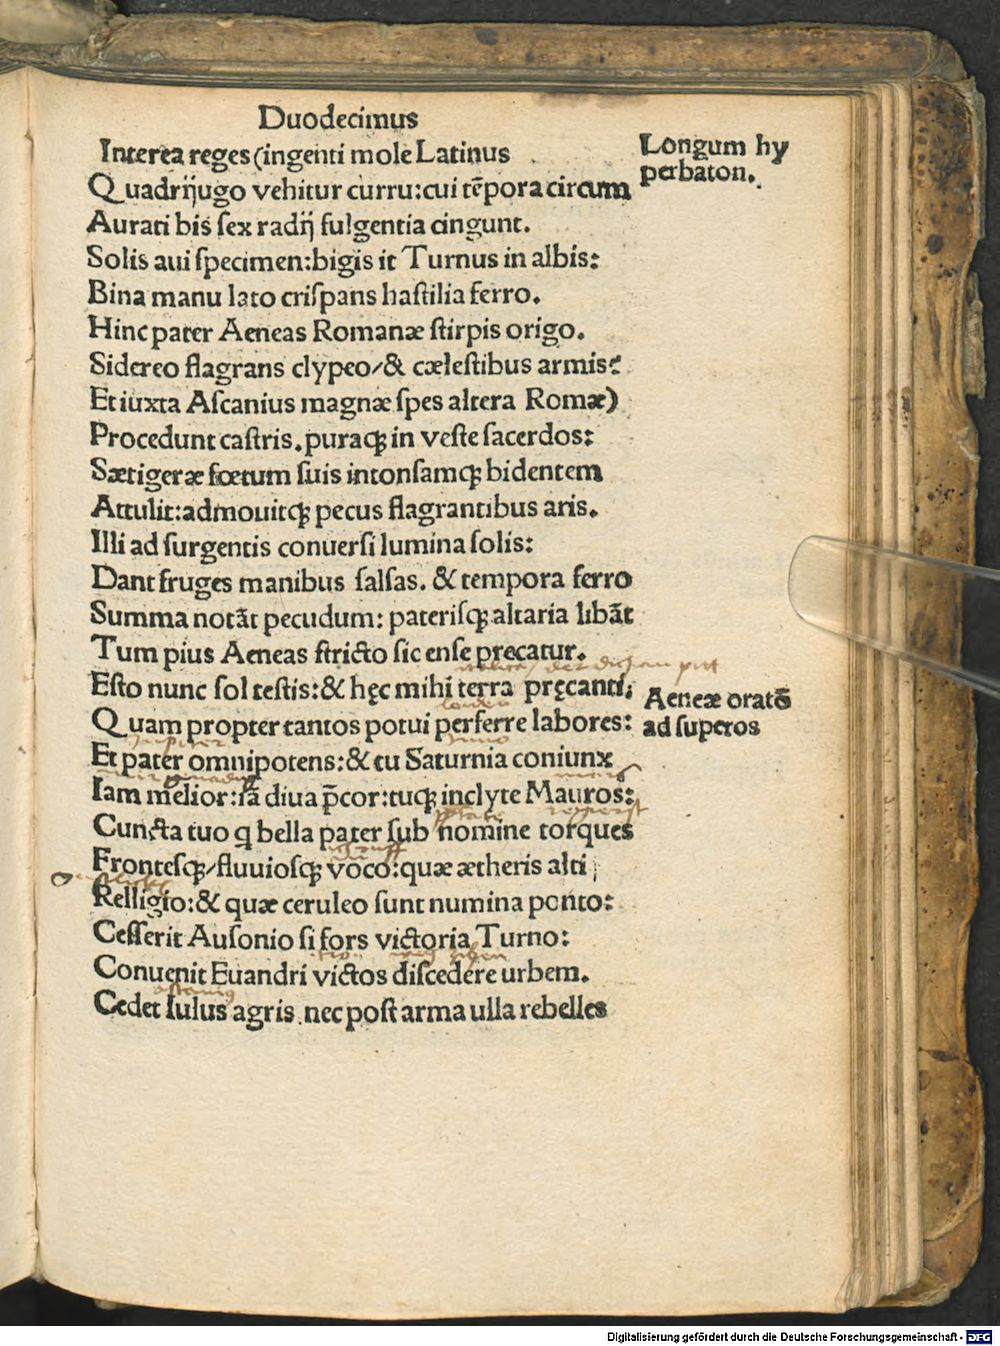 Duodecimus
Interea reges (ingenti mole Latinus
Quadrijugo vehitur curru: cui tēpora circum
Aurati bis ſex radij fulgentia cingunt.
Solis aui ſpecimen: bigis it Turnus in albis:
Bina manu lato criſpans haſtilia ferro.
Hinc pater Aeneas Romanæ ſtirpis origo.
Sidereo flagrans clypeo/ & cæleſtibus armis:
Et iuxta Aſcanius magnæ ſpes altera Romæ)
Procedunt caſtris. puraqꝫ in veſte ſacerdos:
Sætigeræ fœtum ſuis intonſamqꝫ bidentem
Attulit: admouitqꝫ pecus flagrantibus aris.
Illi ad ſurgentis conuerſi lumina ſolis:
Dant fruges manibus ſalſas. & tempora ferro
Summa notāt pecudum: pateriſqꝫ altaria libāt
Tum pius Aeneas ſtricto ſic enſe precatur.
Eſto nunc ſol teſtis: & hęc mihi terra pręcanti,
Quam propter tantos potui perferre labores:
Jupiter Juno
Et pater omnipotens: & tu Saturnia coniunx
Iam melior: iā diua p̄cor: tuqꝫ inclyte Mauros:
Cuncta tuo q bella pater ſub nomine torques
Fronteſqꝫ/ fluuioſqꝫ voco: quæ ætheris alti
Relligio: & quæ ceruleo ſunt numina ponto:
Ceſſerit Auſonio ſi fors victoria Turno:
Conuenit Euandri victos diſcedere urbem.
aſcanius
Cedet Iulus agris. nec poſt arma ulla rebelles
Longum hy
perbaton.
Aeneæ oratō
ad ſuperos
Digitalisierung gefördert durch die Deutsche Forschungsgemeinschaft - DFG